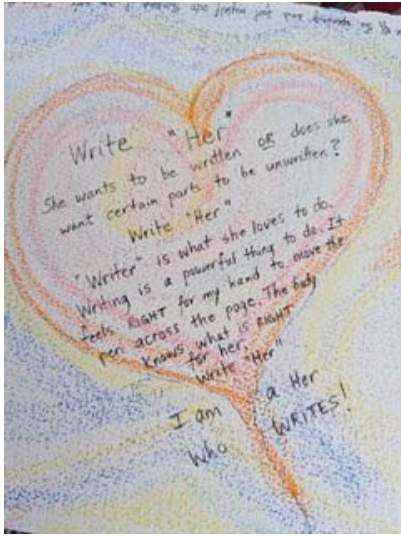 Write "Her"
She wants to be written OR does she
want certain parts to be unwritten?
Write "Her"
"Writer" is what she loves to do.
Writing is a powerful thing to do. It
feels RIGHT for my hand to move the
pen across the page. The body
knows what is RIGHT
for her.
Write "Her"
I am a Her
who WRITES!